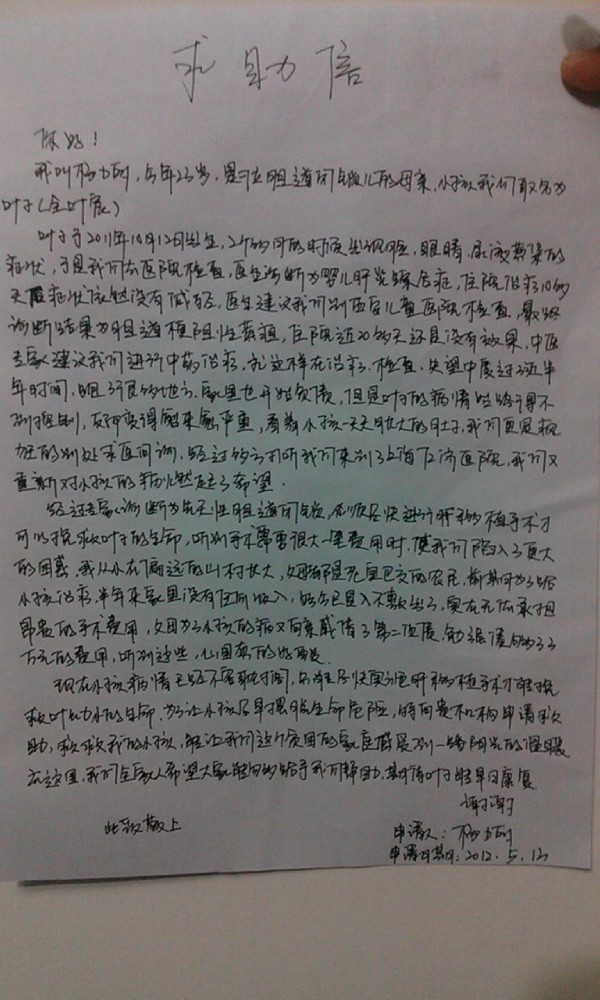 求助信
你好！
我叫杨，今年23岁，是一位胆道闭锁儿的母亲，小孩我们取名为
叶子（全叶宸）
叶子于2011年10月12日出生，2个的时候出现脸，眼睛，尿液黄染的
症状，于是我们去医院检查，医生诊断为婴儿肝炎综合症，住院治疗10多
天症状依然没有减轻，医生建议我们到西安儿童医院检查，最终
诊断结果为胆道梗阻性黄疸，住院近20多天还是没有效果，中医
专家建议我们进行中药治疗，就这样在治疗，检查，失望中度过了近半
年时间，家里也开始负债，但是叶子的病情始终得不
到控制，反而变得越来越严重，看着小孩一天天肚大的肚子，我们更是疯
的到处求医问询，经过多方打听我们来到了上海仁济医院，我们又
重新对小孩的病燃起了希望。
经过专家诊断为先天性胆道闭锁，必须尽快进行肝移植手术才
可以挽救叶子的生命，听到手术需要很大一笔费用时，使我们陷入了更大
的困惑，我从小在偏远的山村长大，父母都是的农民，前期为了给
小孩治疗，半年来家里没有任何收入，如今已是入不敷出了，实在无法承担
昂贵的手术费用，父母为了小孩的病又向亲戚借了第二次债，
万元的费用，听到这些，心里真的好酸。
现在小孩病情已经不容耽搁时间，必须尽快实施肝移植手术才能挽
救叶子幼小的生命，为了让小孩尽早摆脱生命危险，特向贵机构申请救
助，救救我的小孩，能让我们这个贫困的家庭感受到一缕阳光的温暖
在这里，我们全家人希望大家能够给予我们帮助，期待叶子能早日康复
谢谢
此致敬上
申请人：杨
申请日期：2012.5.12